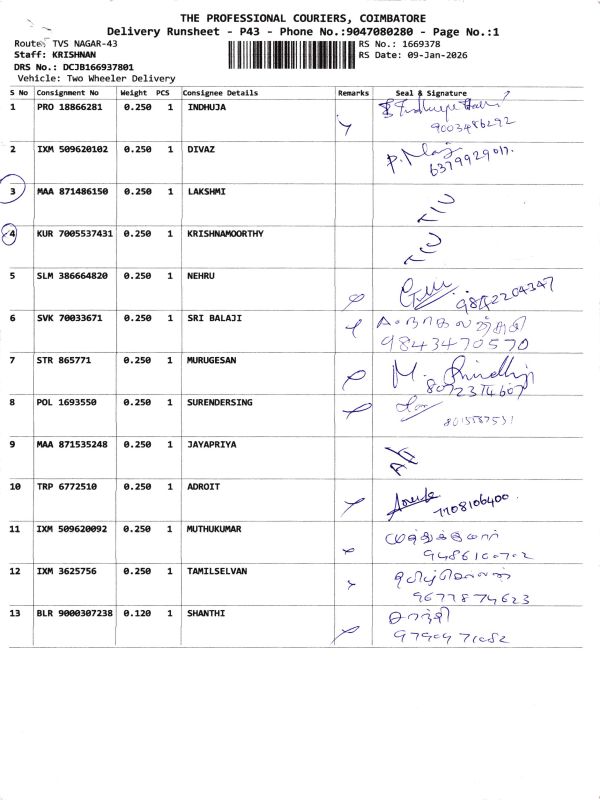 THE PROFESSIONAL COURIERS, COIMBATORE
Delivery Runsheet - P43 - Phone No.:9047080280 - Page No.:1
Route: TVS NAGAR-43 RS No.: 1669378
Staff: KRISHNAN RS Date: 09-Jan-2026
DRS No.: DCJB166937801
Vehicle: Two Wheeler Delivery
S No Consignment No Weight PCS Consignee Details Remarks Seal & Signature
1 PRO 18866281 0.250 1 INDHUJA
9003486292
2 IXM 509620102 0.250 1 DIVAZ
6379929017.
3 MAA 871486150 0.250 1 LAKSHMI
4 KUR 7005537431 0.250 1 KRISHNAMOORTHY
5 SLM 386664820 0.250 1 NEHRU
9842204347
6 SVK 70033671 0.250 1 SRI BALAJI
9843470570
7 STR 865771 0.250 1 MURUGESAN M.
8072314607
8 POL 1693550 0.250 1 SURENDERSING
9 MAA 871535248 0.250 1 JAYAPRIYA
10 TRP 6772510 0.250 1 ADROIT
7708106400
11 IXM 509620092 0.250 1 MUTHUKUMAR முத்துக்குமார்
9486100702
12 IXM 3625756 0.250 1 TAMILSELVAN தமிழ்செல்வன்
9677874623
13 BLR 9000307238 0.120 1 SHANTHI சாந்தி
9790471082